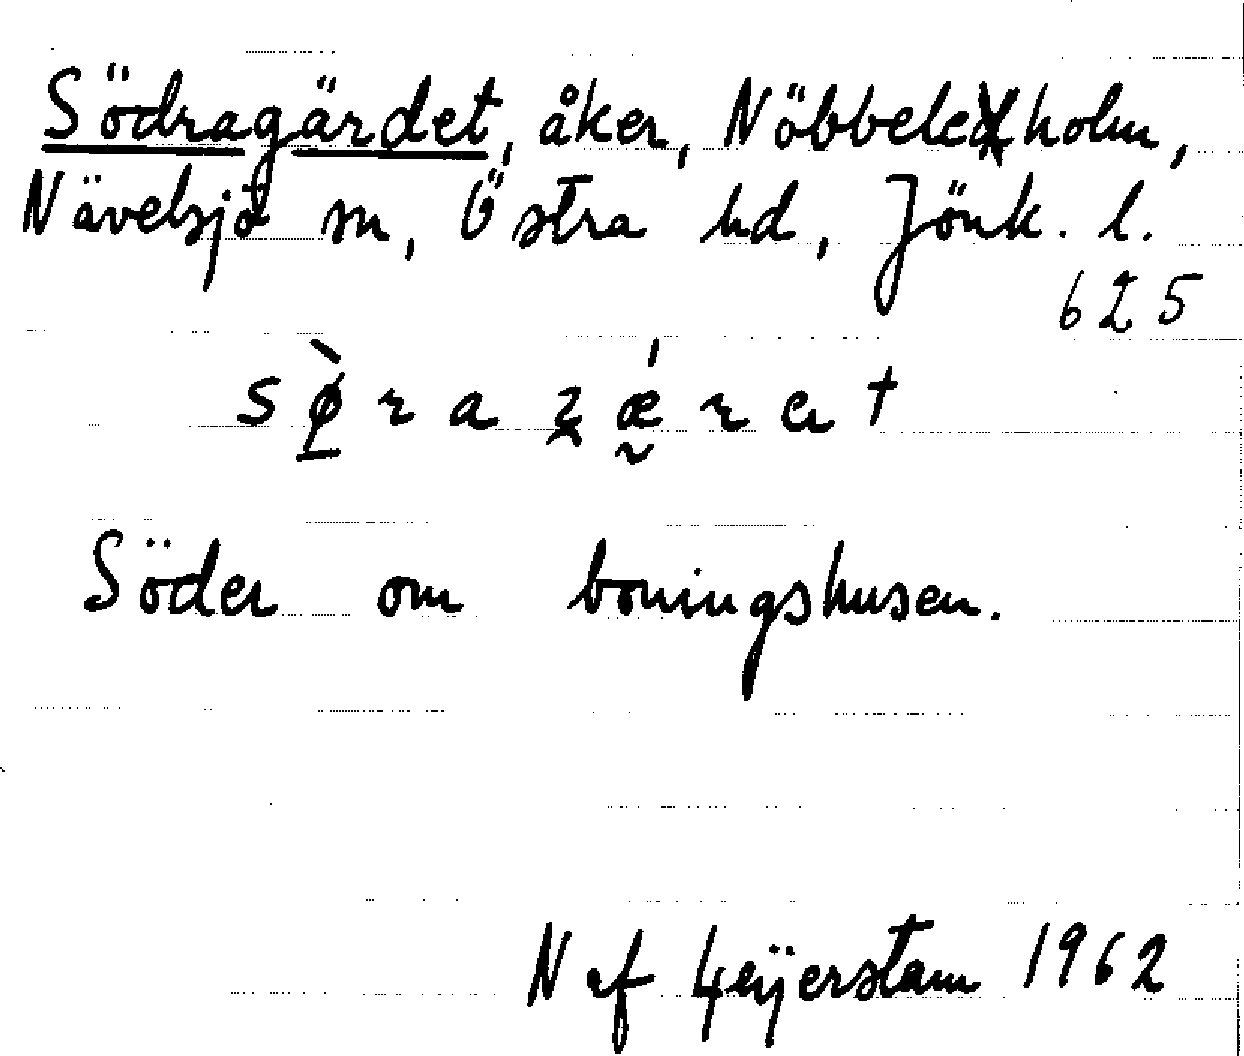 Södragärdet, åker, Nöbbeleholm,
Nävelsjö sn, Östra hd, Jönk. l.
625
Söder om boningshusen.
N af Geijerstam 1962